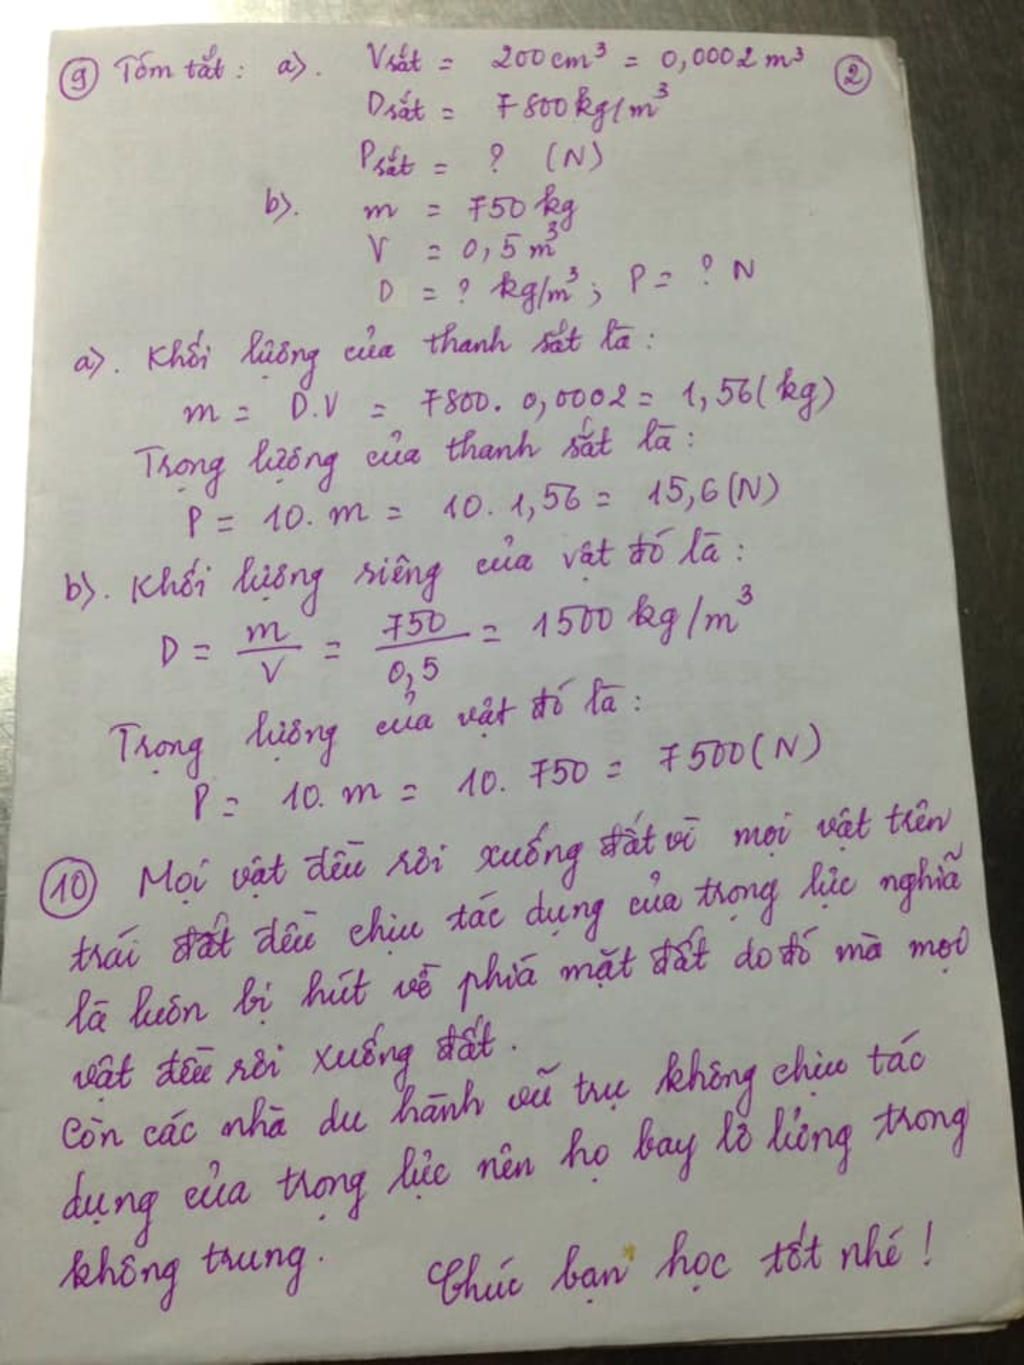 9 Tóm tắt: a). Vsắt = 200cm³ = 0,0002m³ 2
Dsắt = 7800kg/m³
Psắt = ? (N)
b). m = 750kg
V = 0,5m³
D = ? kg/m³; P = ? N
a). Khối lượng của thanh sắt là:
m = D.V = 7800. 0,0002 = 1,56(kg)
Trọng lượng của thanh sắt là:
P = 10. m = 10. 1,56 = 15,6(N)
b). Khối lượng riêng của vật đó là:
D = m/V = 750/0,5 = 1500 kg/m³
Trọng lượng của vật đó là:
P = 10. m = 10. 750 = 7500(N)
10 Mọi vật đều rơi xuống đất vì mọi vật trên
trái đất đều chịu tác dụng của trọng lực nghĩa
là luôn bị hút về phía mặt đất do đó mà mọi
vật đều rơi xuống đất.
Còn các nhà du hành vũ trụ không chịu tác
dụng của trọng lực nên họ bay lơ lửng trong
không trung.
Chúc bạn học tốt nhé!